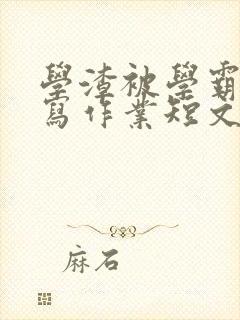 學渣被學霸
寫作業短文
麻石